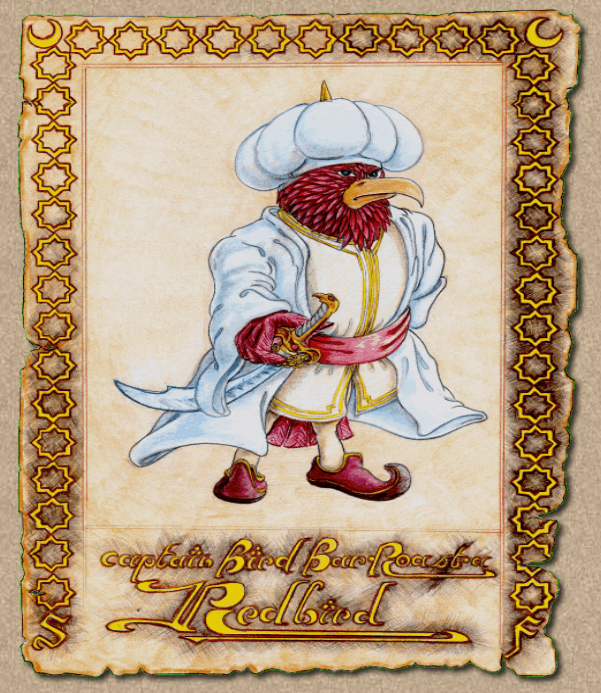 captain Bird BarRoastra
Redbird